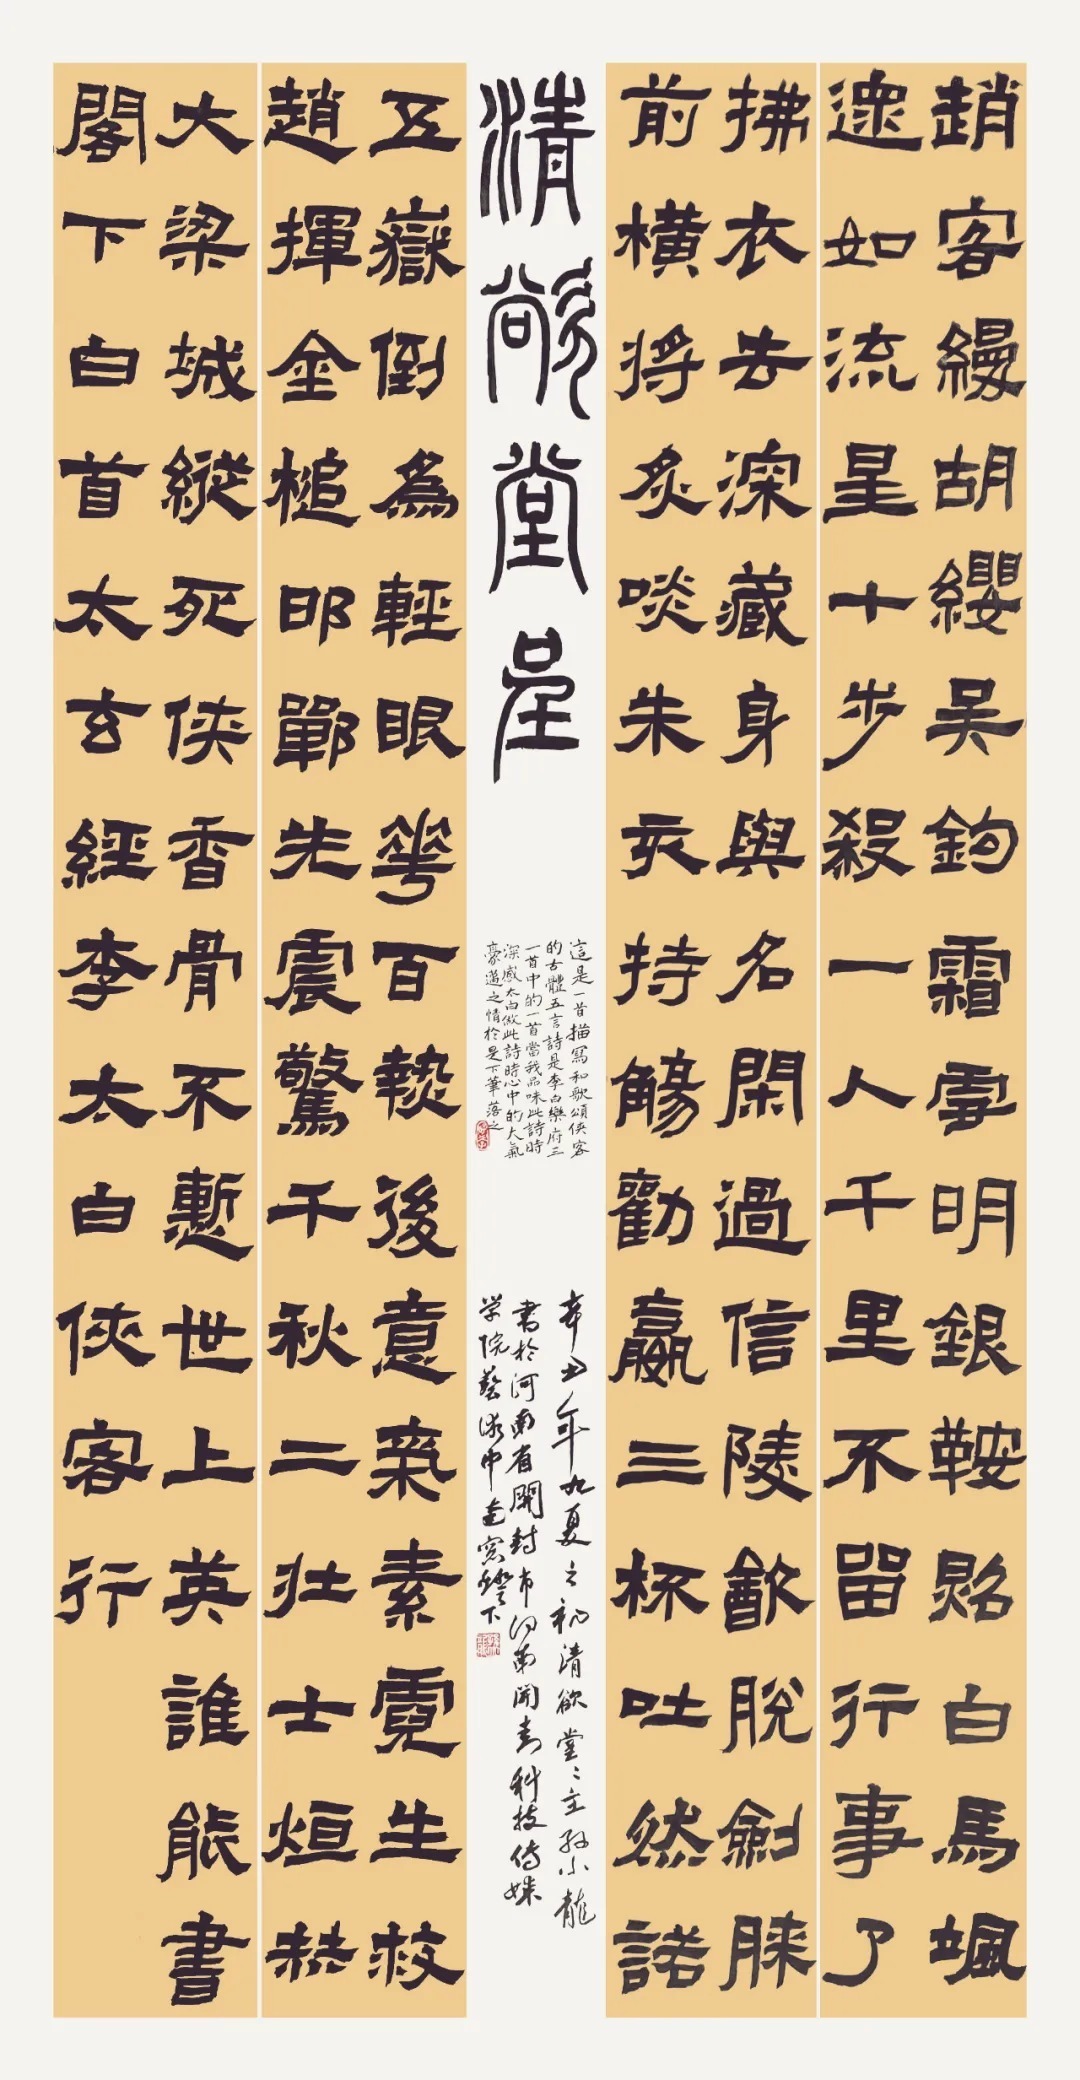 趙客縵胡纓吳鉤霜雪明銀鞍照白馬颯
遝如流星十步殺一人千里不留行事了
拂衣去深藏身與名閑過信陵飲脫劍膝
前橫將炙啖朱亥持觴勸嬴三杯吐然諾
清欲堂呈
這是一首描寫和歌頌俠客
的古體五言詩是李白樂府三
一首中的一首當我品味此詩時
深感太白做此詩時心中的大氣
豪邁之情於是下筆落之
辛丑年九夏之初清欲堂〻主孫小龍
書於河南省開封市河南開封科技傳媒
学院藝術中燈下
五嶽倒為輕眼花百熱後意氣素霓生救
趙揮金槌邯鄲先震驚千秋二壯士烜赫
大梁城縱死俠香骨不慚世上英誰能書
閣下白首太玄經李太白俠客行